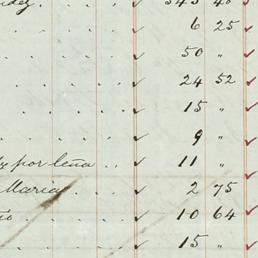 ✓ 6 25
✓ 50 "
✓ 24 52
✓ 15 "
✓ 9 "
por leña . . ✓ 11 "
Maria . . ✓ 2 75
✓ 10 64
✓ 15 "